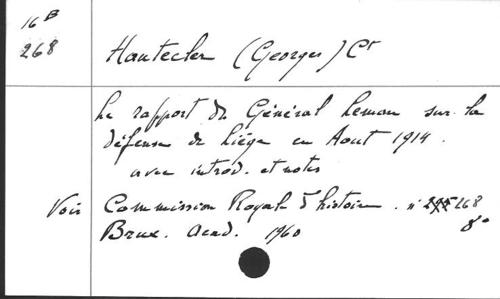 16 B
268
Hautecler (Georges) Ct
Le rapport du Général Leman sur la
défense de Liège en Aout 1914.
avec introd. et notes
Voir Commission Royale d'histoire. n° 268
Brux. Acad. 1960 8°